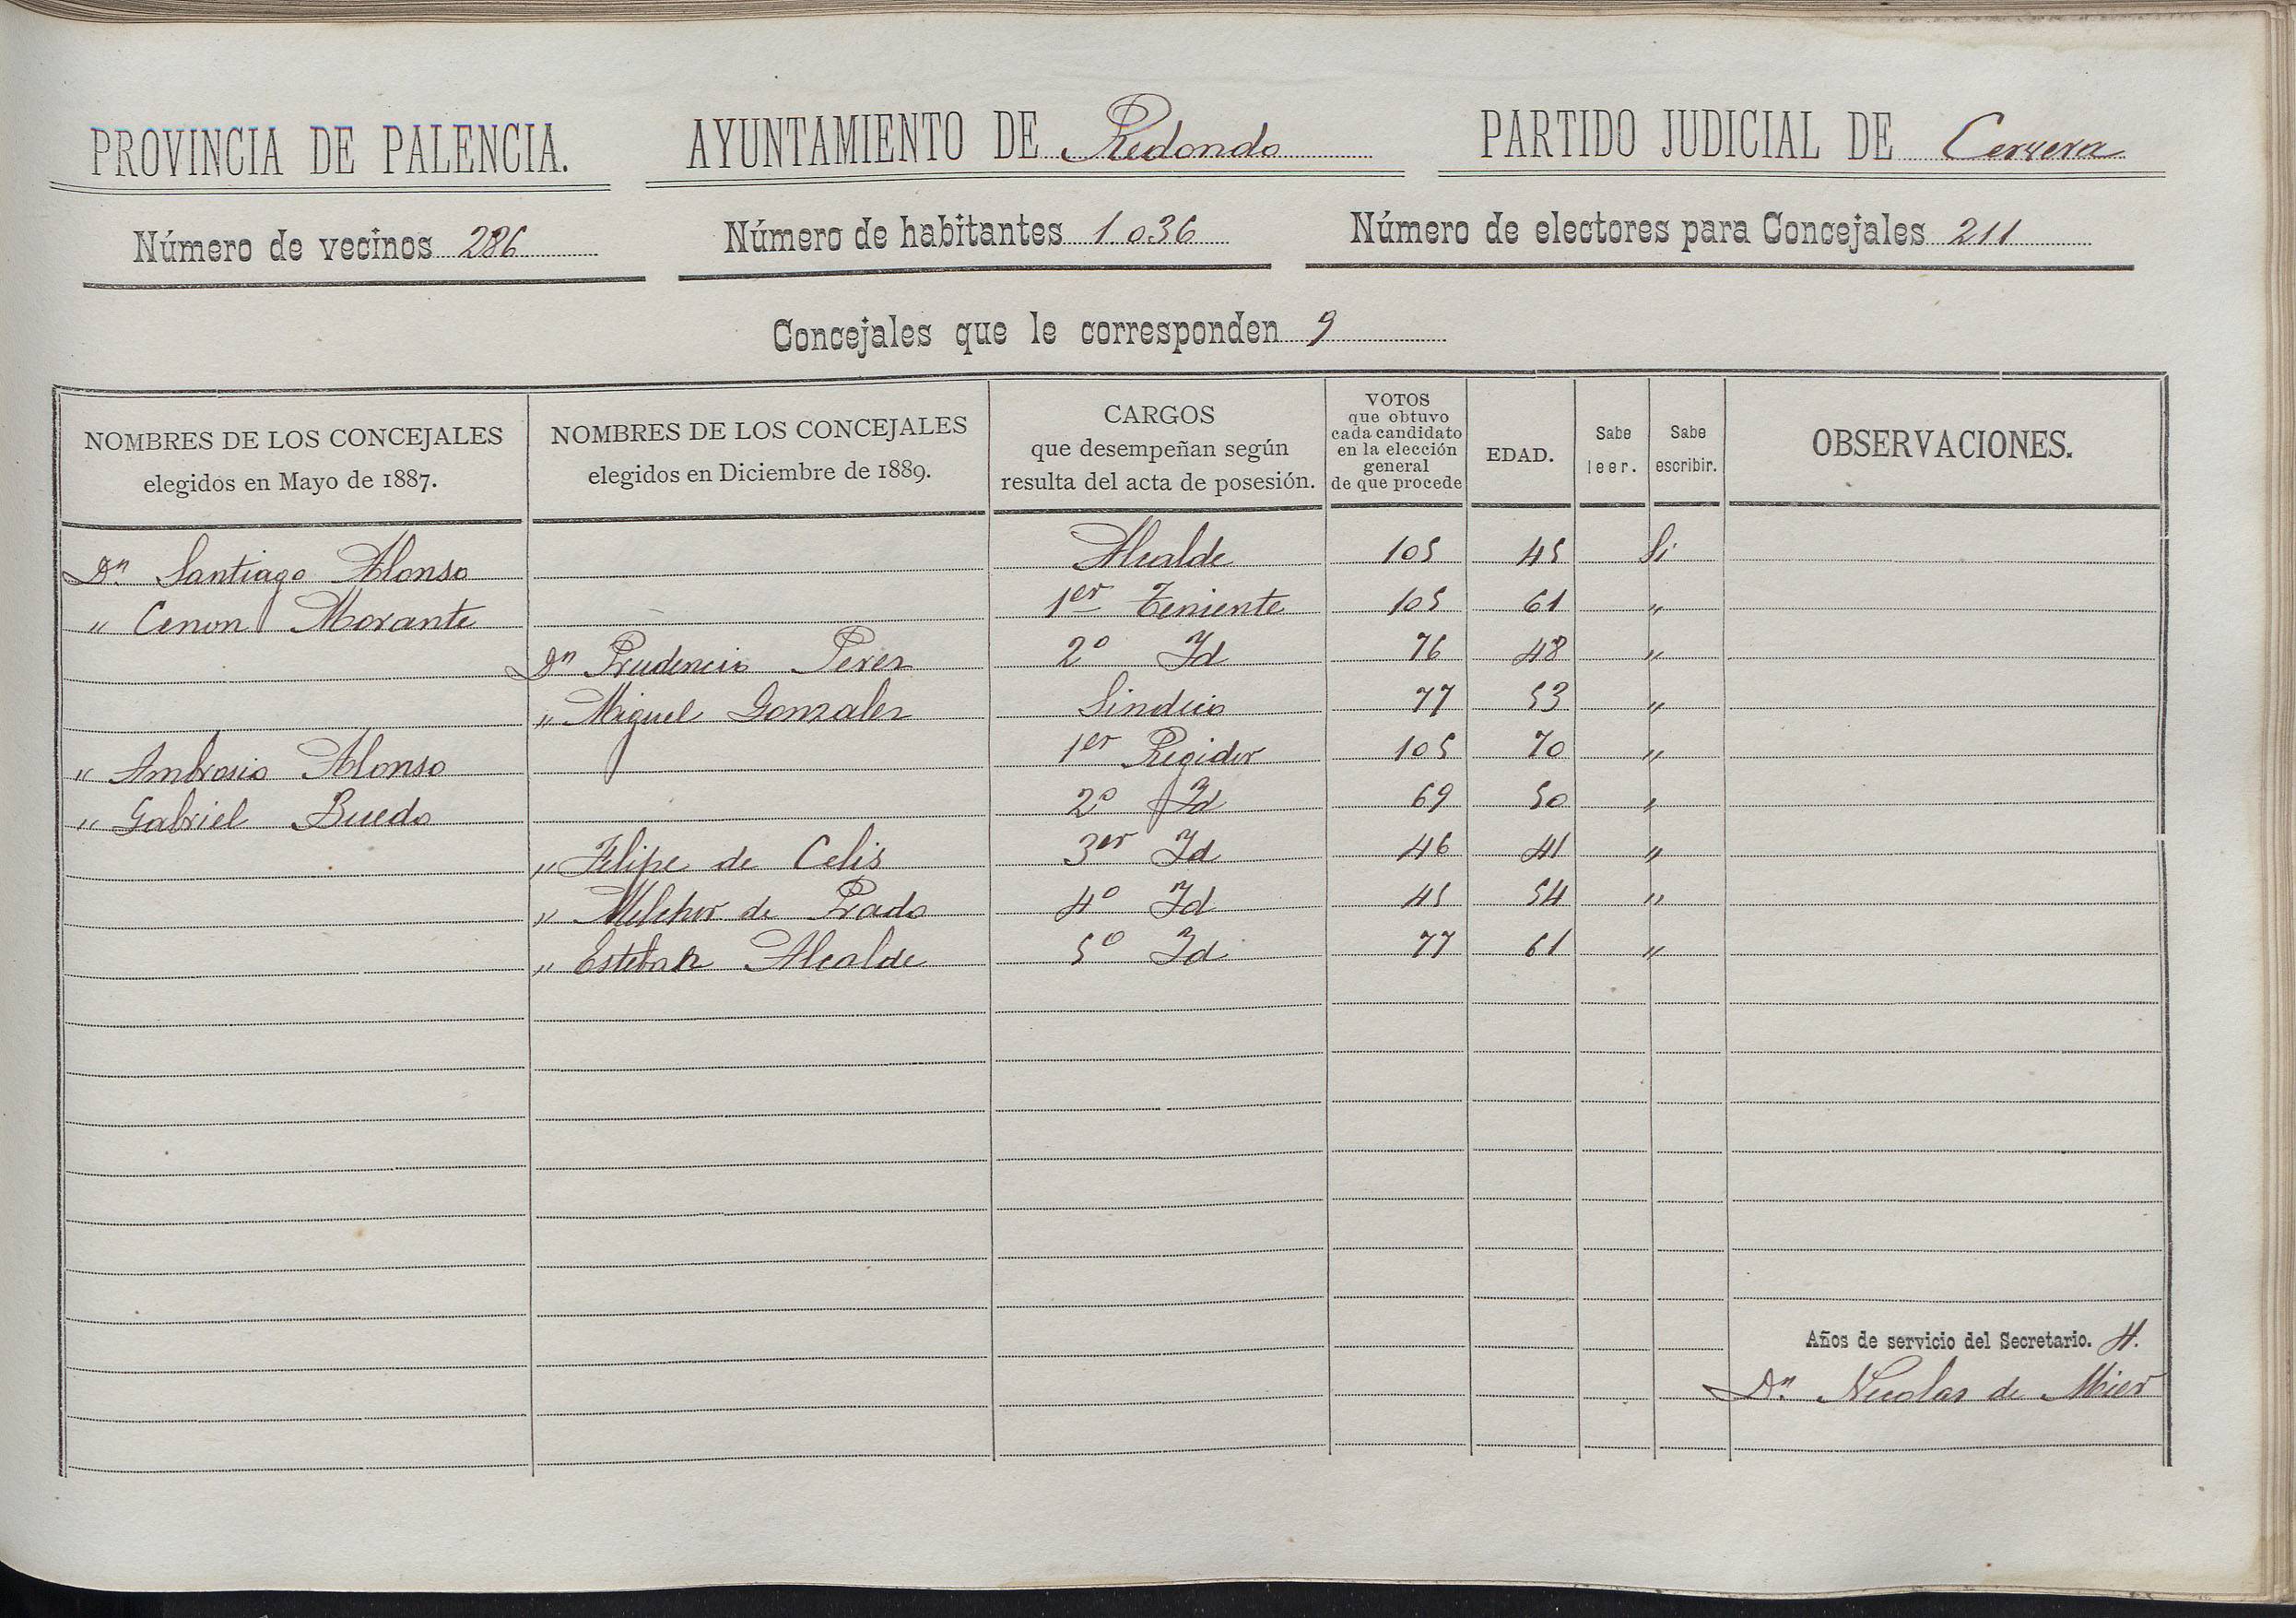 PROVINCIA DE PALENCIA. AYUNTAMIENTO DE Redondo PARTIDO JUDICIAL DE Cervera
Número de vecinos 286 Número de habitantes 1036 Número de electores para Concejales 211
Concejales que le corresponden 9
NOMBRES DE LOS CONCEJALES
elegidos en Mayo de 1887.
NOMBRES DE LOS CONCEJALES
elegidos en Diciembre de 1889.
CARGOS
que desempeñan según
resulta del acta de posesión.
VOTOS
que obtuvo
cada candidato
en la elección
general
de que procede
EDAD.
Sabe
leer.
Sabe
escribir.
OBSERVACIONES.
Dn. Santiago Alonso Alcalde 105 45 Si
" Cenon Morante 1er Teniente 105 61 "
Dn Prudencio Perez 2º Id 76 48 "
" Miguel Gonzalez Sindico 77 53 "
" Ambrosio Alonso 1er Regidor 105 70 "
" Gabriel Buedo 2º Id 69 50 "
" Felipe de Celis 3er Id 46 41 "
" Melchor de Prado 4º Id 45 54 "
" Esteban Alcalde 5º Id 77 61 "
Años de servicio del Secretario. 4.
Dn. Nicolas de Mier